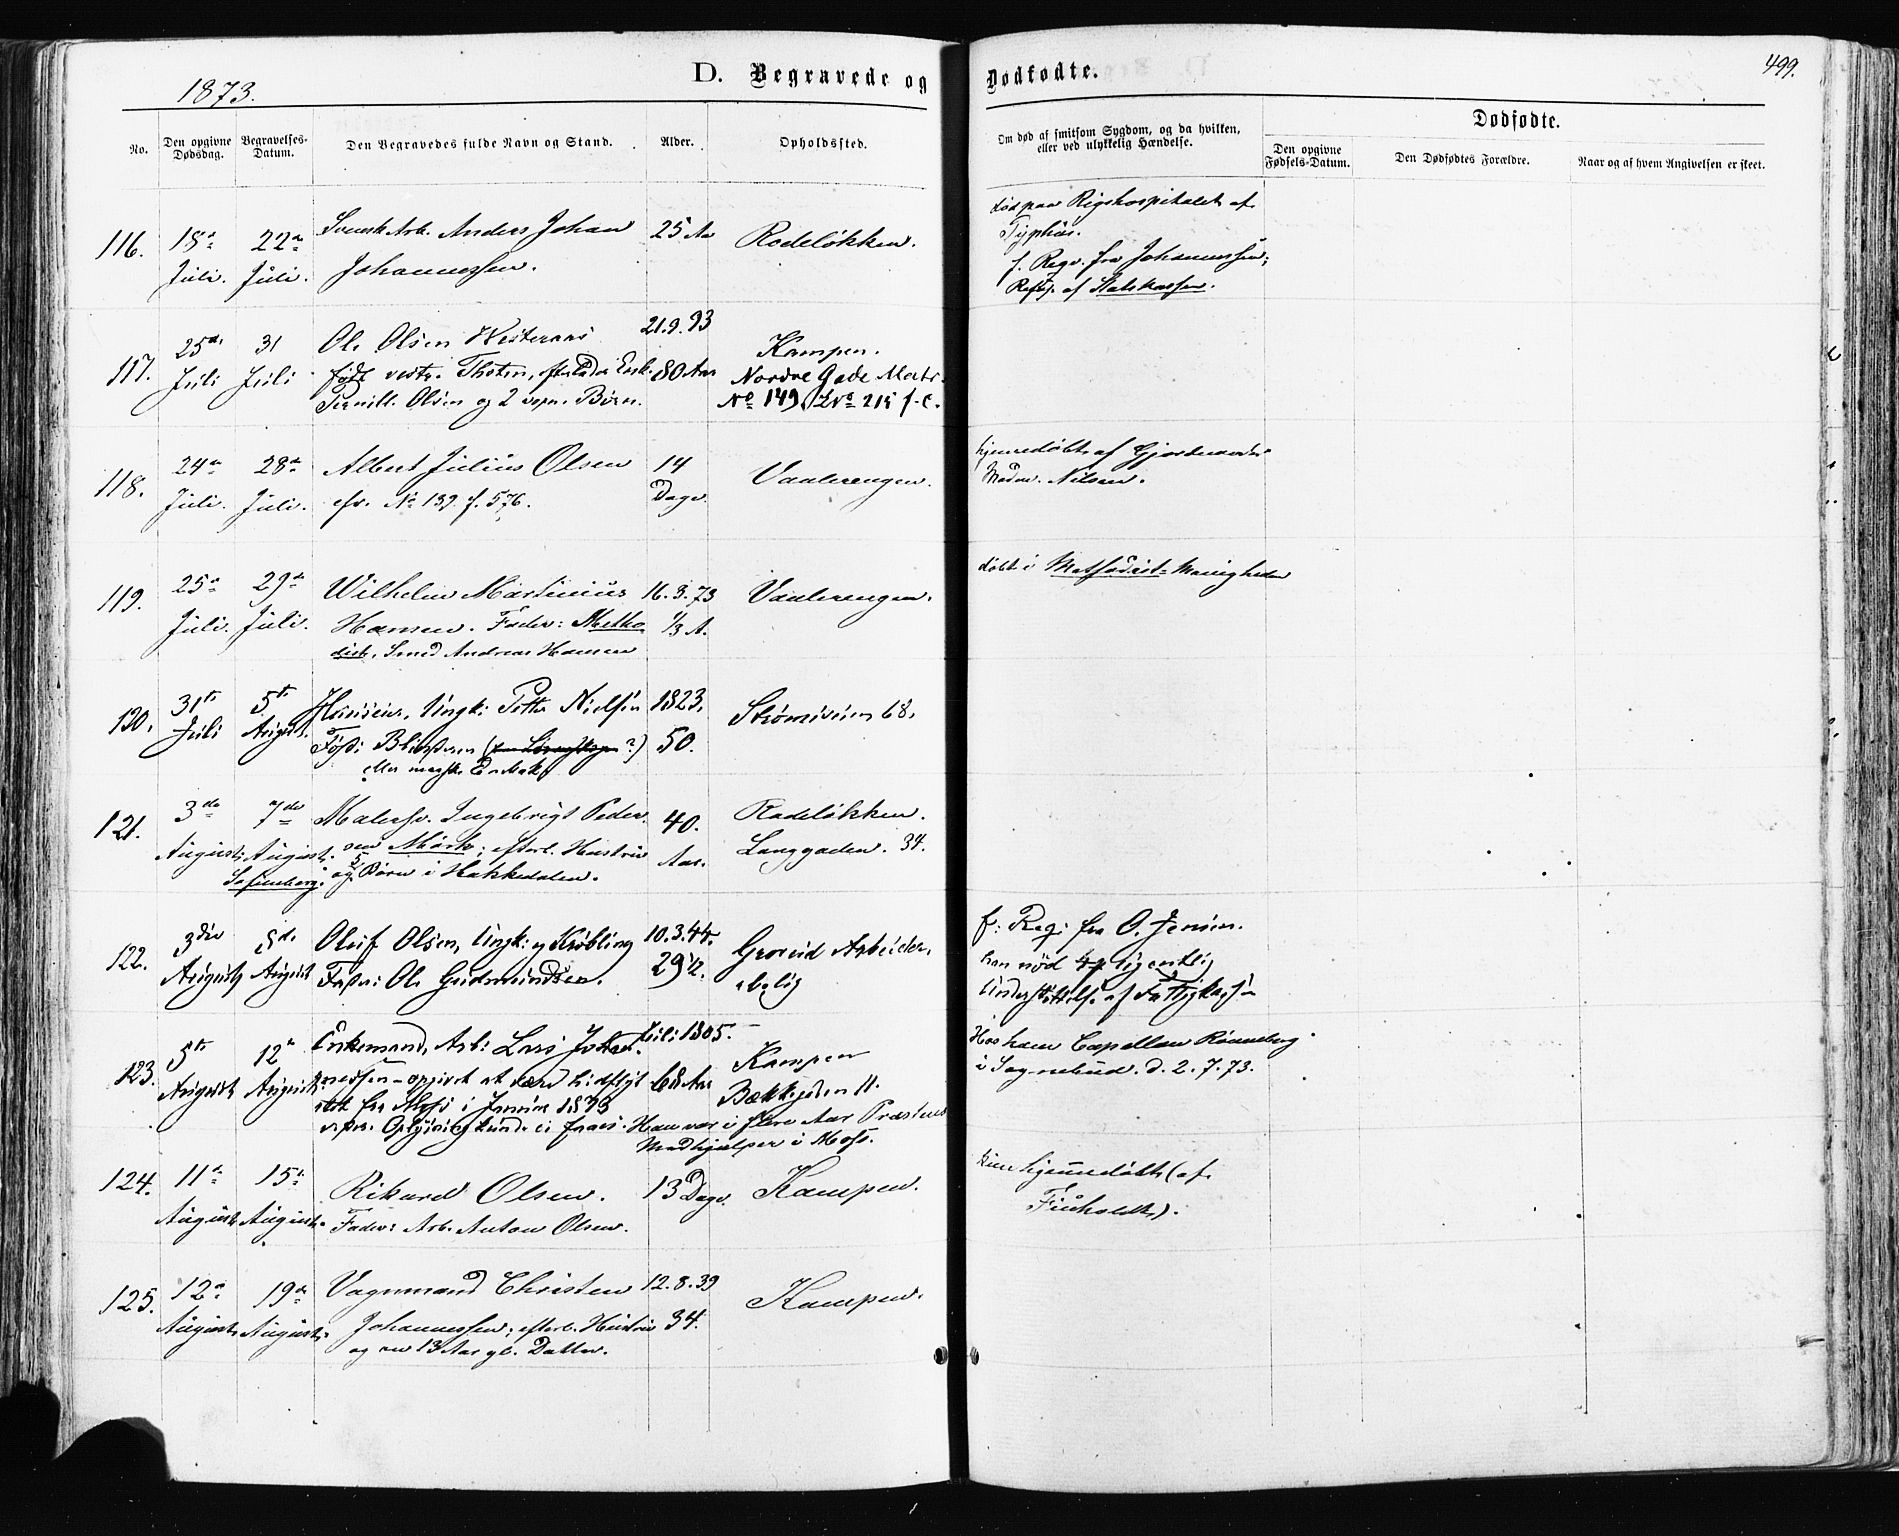 1873.
D. Begravede og Dødfødte.
499.
No.
Den opgivne Dødsdag.
Begravelses-Datum.
Den Begravedes fulde Navn og Stand.
Alder.
Opholdssted.
Om død af smitsom Sygdom, og da hvilken, eller ved ulykkelig Hændelse.
Dødfødte.
Den opgivne Fødsels-Datum.
Den Dødfødtes Forældre.
Naar og af hvem Angivelsen er skeet.
116.
18de Juli.
22de Juli.
Svensk Arb. Anders Johan
Johannessen.
25 Aar
Rodeløkken.
død paa Rigshospitalet af
Typhus.
f. Regn. fra Johannessen;
af Statskassen.
117.
25de Juli
31 Juli
Ole Olsen Westeraas
født vestre Thoten, efterlader Enke
Pernille Olsen og 2 Børn.
21.9.93
80 Aar
Kampen.
Nordre Gade Matr.
No 149, Lno 215 f.c.
118.
24de Juli.
28de Juli.
Albert Julius Olsen
cfr. No 139. f. 576.
14
Dage
Vaalerengen.
hjemmedøbt af Gjordemoder
Madm. Nilsen.
119.
25de Juli.
29de Juli.
Wilhelm Martinius
Hansen. Fader: Metho
dist, Smed Andreas Hansen
16.3.73
1/3 A.
Vaalerengen.
døbt i Methodist-Menigheden
120.
31te Juli
5te August.
Huseier, Ungk: Petter Nielsen
Født:
1823.
50.
Strømsveien 68.
121.
3de August
7de August.
Sofienberg.
Malersv. Ingebrigt Peder
sen Mørk; efterl. Hustru
og 5 Børn i Hakkedalen.
40.
Aar.
Rodeløkken.
Langgaden. 34.
122.
3die August
8de August
Oluf Olsen, Ungk: og Krøbling
Fader: Ole Gudmundsen.
10.3.44.
29 1/2.
Grønvold Arbeider-
bolig
f: Reg: fra O. Jensen.
han nød egentlig
Understøttelse af Fattigkassen
123.
5te August
12te August
Enkemand, Arb: Lars Johan
nessen - opgivet at være hidflyt
tet fra Moss i Januar 1873
Oplysning kunde ei faaes.
Juli 1805.
68 Aar
Kampen
Bækkegaden 11.
Han var i flere Aar Præstens
Medhjælper i Moss.
Hos ham Capellan Rønneberg
i Sognebud. d. 2.7.73.
124.
11te August
15de August.
Rikard Olsen.
Fader: Arb. Anton Olsen.
13 Dage.
Kampen.
kun hjemmedøbt (af
Finholdt).
125.
12te August
19de August.
Vognmand Christen
Johannessen; efterl. Hustru
og en 13 Aar gl. Datter.
12.8.39
34.
Kampen.